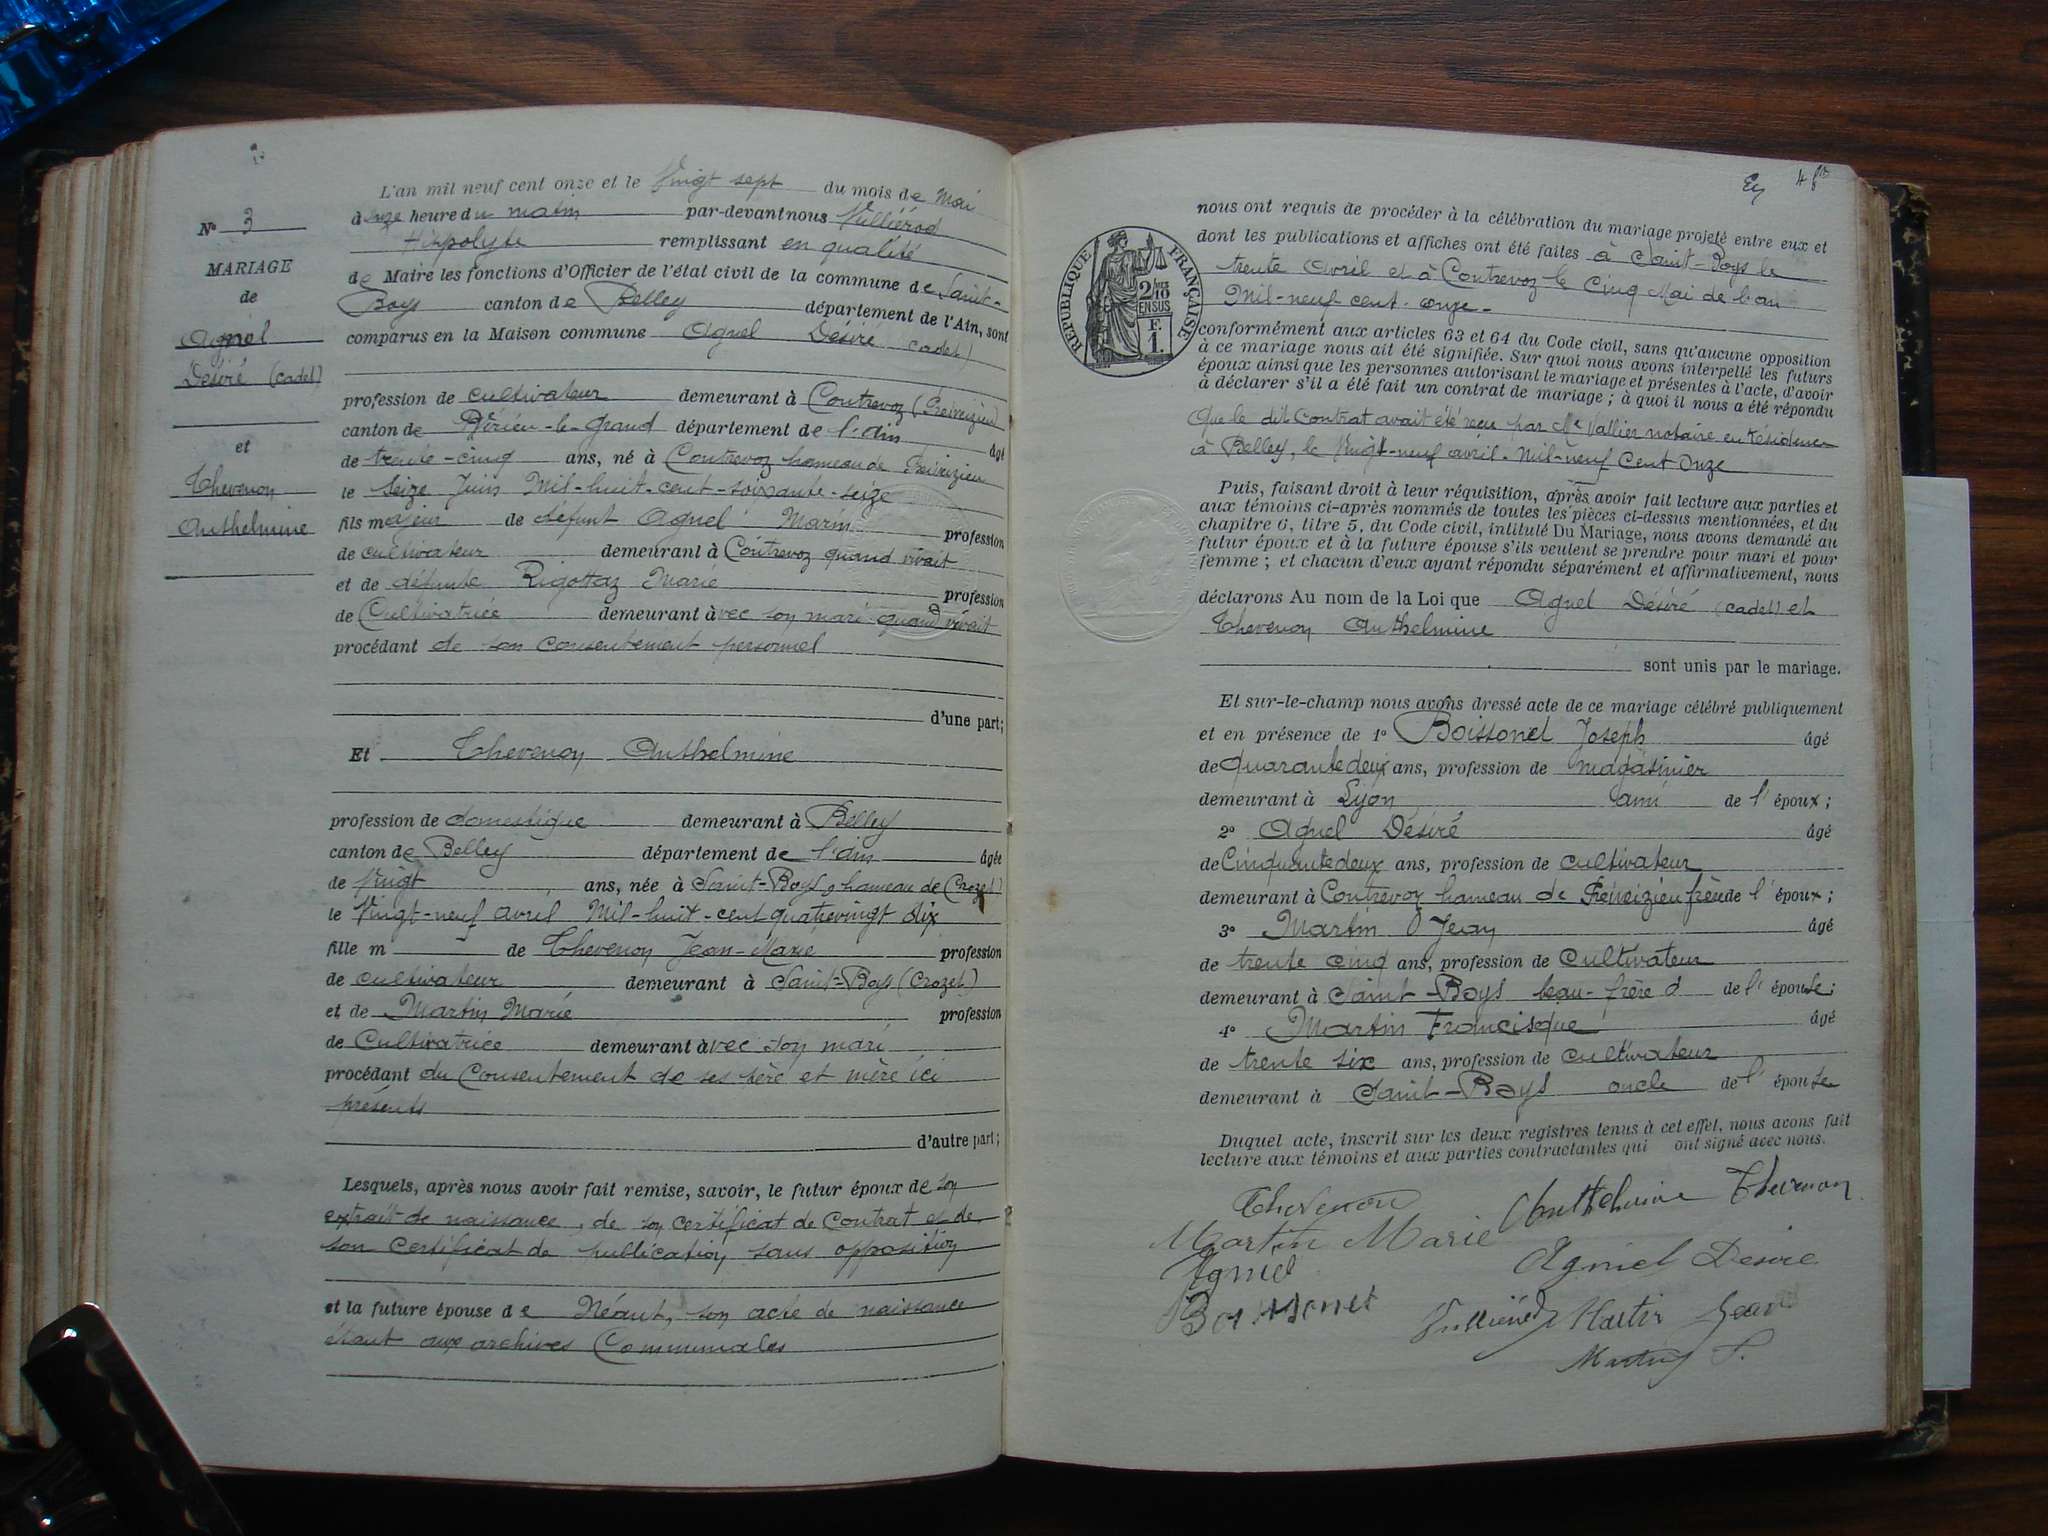 L'an mil neuf cent onze et le Vingt sept du mois de Mai
à onze heure du matin par-devant nous Vulliérod
Hippolyte remplissant en qualité
de Maire les fonctions d'Officier de l'état civil de la commune de Saint-
Boys canton de Belley département de l'Ain, sont
comparus en la Maison commune Agnel Désiré (cadet)
profession de cultivateur demeurant à Contrevoz (Preiveizieu)
canton de Virieu-le-Grand département de l'ain âgé
de trente-cinq ans, né à Contrevoz hameau de Preiveizieu
le Seize Juin Mil-huit-cent-soixante-seize
fils majeur de défunt Agnel Marin profession
de cultivateur demeurant à Contrevoz quand vivait
et de défunte Rigottaz Marie profession
de Cultivatrice demeurant avec son mari quand vivait
procédant de son consentement personnel
d'une part;
Et Thevenon Anthelmine
profession de domestique demeurant à Belley
canton de Belley département de l'ain âgée
de Vingt ans, née à Saint-Boys, hameau de (Crozet)
le Vingt-neuf avril Mil-huit-cent quatrevingt dix
fille m de Thevenon Jean-Marie profession
de cultivateur demeurant à Saint-Boys (Crozet)
et de Martin Marie profession
de Cultivatrice demeurant avec son mari
procédant du Consentement de ses père et mère ici
présents
d'autre part;
Lesquels, après nous avoir fait remise, savoir, le futur époux de son
extrait de naissance, de son certificat de Contrat et de
son certificat de publication sans opposition
et la future épouse de Néant, son acte de naissance
étant aux archives Communales
No 3
MARIAGE
de
Agnel
Désiré (cadet)
et
Thevenon
Anthelmine
48
nous ont requis de procéder à la célébration du mariage projeté entre eux et
dont les publications et affiches ont été faites à Saint-Boys le
trente Avril et à Contrevoz le Cinq Mai de l'an
Mil-neuf cent-onze-
conformément aux articles 63 et 64 du Code civil, sans qu'aucune opposition
à ce mariage nous ait été signifiée. Sur quoi nous avons interpellé les futurs
époux ainsi que les personnes autorisant le mariage et présentes à l'acte, d'avoir
à déclarer s'il a été fait un contrat de mariage ; à quoi il nous a été répondu
Que le dit Contrat avait été reçu par Me Vallier notaire en résidence
à Belley, le Vingt-neuf avril-Mil-neuf Cent Onze
Puis, faisant droit à leur réquisition, après avoir fait lecture aux parties et
aux témoins ci-après nommés de toutes les pièces ci-dessus mentionnées, et du
chapitre 6, titre 5, du Code civil, intitulé Du Mariage, nous avons demandé au
futur époux et à la future épouse s'ils veulent se prendre pour mari et pour
femme ; et chacun d'eux ayant répondu séparément et affirmativement, nous
déclarons Au nom de la Loi que Agnel Désiré (cadet) et
Thevenon Anthelmine
sont unis par le mariage.
Et sur-le-champ nous avons dressé acte de ce mariage célébré publiquement
et en présence de 1o Boissonet Joseph âgé
de quarante deux ans, profession de magasinier
demeurant à Lyon ami de l'époux ;
2o Agnel Désiré âgé
de Cinquante deux ans, profession de cultivateur
demeurant à Contrevoz hameau de Preiveizieu frère de l'époux ;
3o Martin Jean âgé
de trente cinq ans, profession de Cultivateur
demeurant à Saint-Boys beau-frère d de l'épouse ;
4o Martin Francisque âgé
de trente six ans, profession de cultivateur
demeurant à Saint-Boys oncle de l'épouse
Duquel acte, inscrit sur les deux registres tenus à cet effet, nous avons fait
lecture aux témoins et aux parties contractantes qui ont signé avec nous.
Thevenon Anthelmine Thevenon
Martin Marie
Agniel Agniel Desire
Boissonet Vulliérod Martin Jean
Martin F.
RÉPUBLIQUE FRANÇAISE
2/10
EN SUS
F.
1.